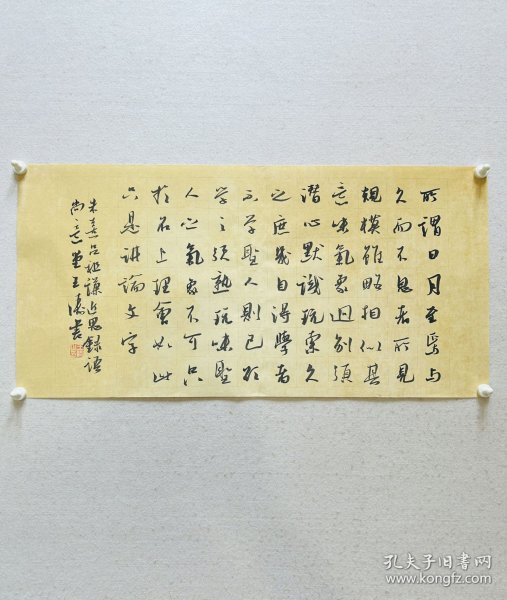 所謂日月至焉與
久而不息者所見
規模雖略相似其
意味氣象迥别須
潛心默識玩索久
之庶幾自得學者
不學聖人則已欲
學之須熟玩味聖
人之氣象不可只
於名上理會如此
只是講論文字
朱熹呂祖謙近思錄語
尚意堂王濤書
孔夫子旧书网
www.kongfz.com